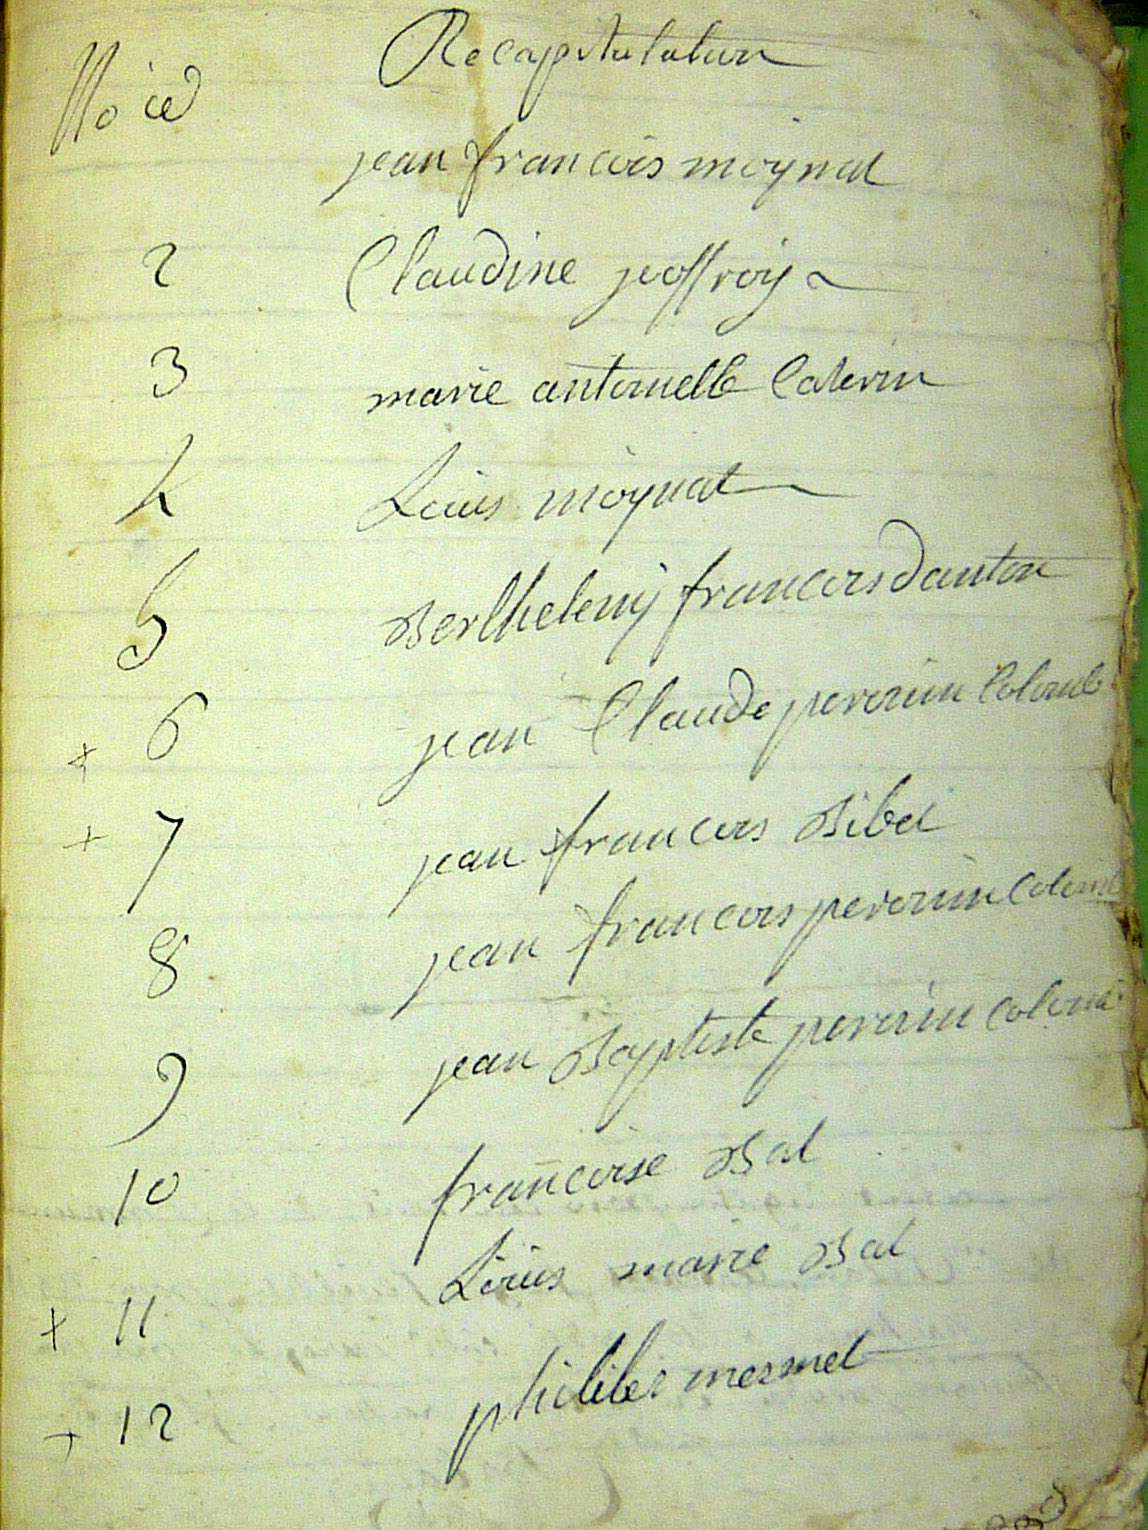 Recapitulation
No ier jean francois moynat
2 Claudine jeoffroy
3 marie antoinette Caterin
4 Louis moynat
5 Berthelemy francois danton
+ 6 jean Claude perouin Colomb
+ 7 jean francois Bibet
8 jean francois perouin Colomb
9 jean Baptiste perouin Colomb
10 francoise Bal
+ 11 Louis marie Bal
+ 12 philiber mermet